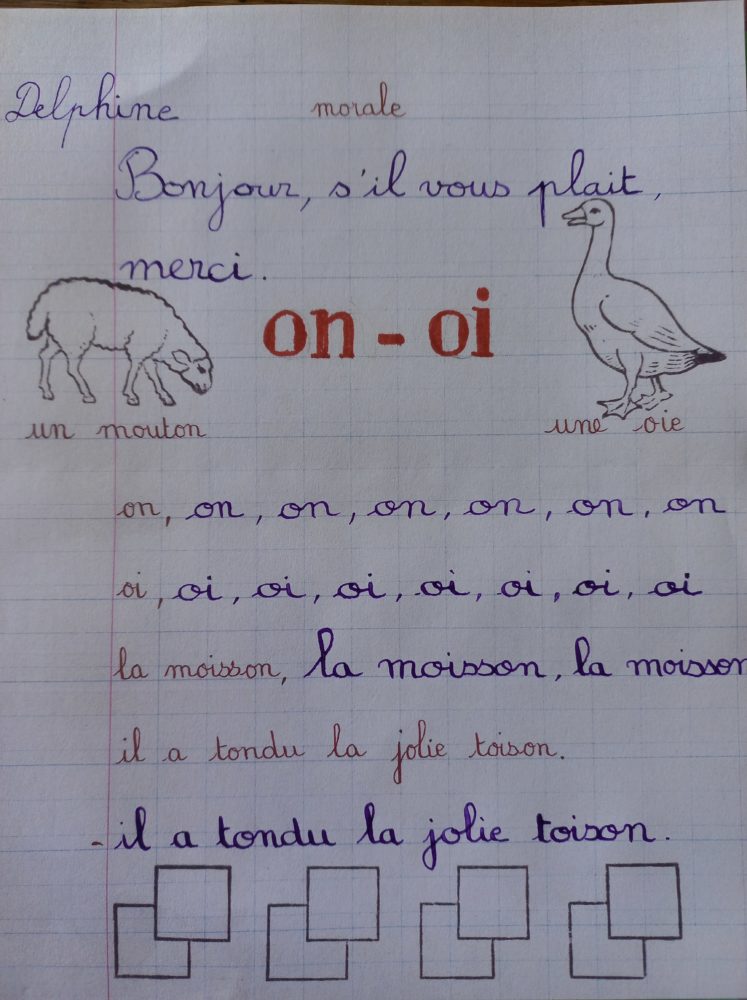 Delphine morale
Bonjour, s'il vous plait,
merci.
on - oi
un mouton une oie
on, on, on, on, on, on, on
oi, oi, oi, oi, oi, oi, oi, oi
la moisson, la moisson, la moisson
il a tondu la jolie toison.
- il a tondu la jolie toison.